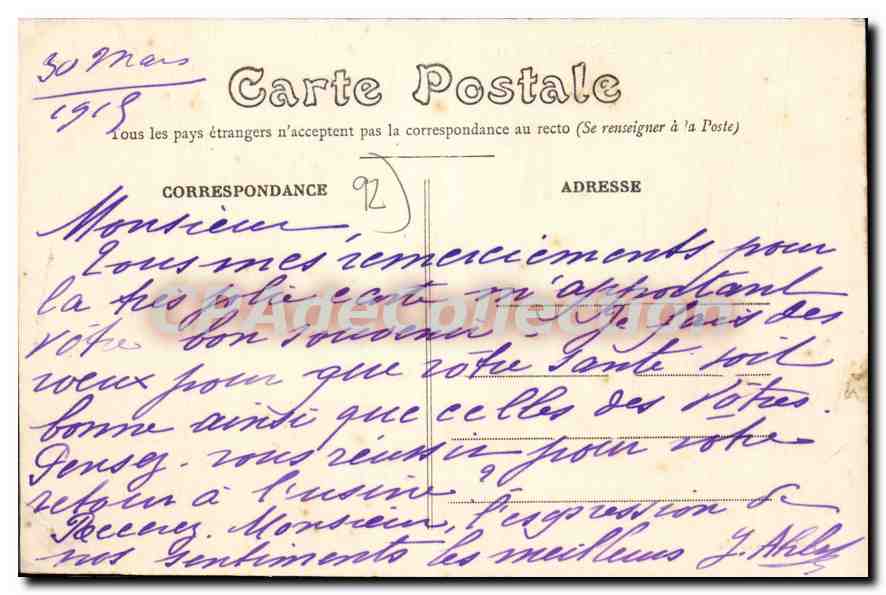 30 Mars
1915
Carte Postale
Tous les pays étrangers n'acceptent pas la correspondance au recto (Se renseigner à la Poste)
CORRESPONDANCE
92
ADRESSE
Monsieur,
Tous mes remerciements pour
la très jolie carte m'apportant
vôtre bon souvenir. Je fais des
vœux pour que vôtre santé soit
bonne ainsi que celles des Vôtres.
Pensez-vous réussir pour vôtre
retour à l'usine?
Recevez, Monsieur, l'expression de
nos sentiments les meilleurs J.
CPAdeCollection